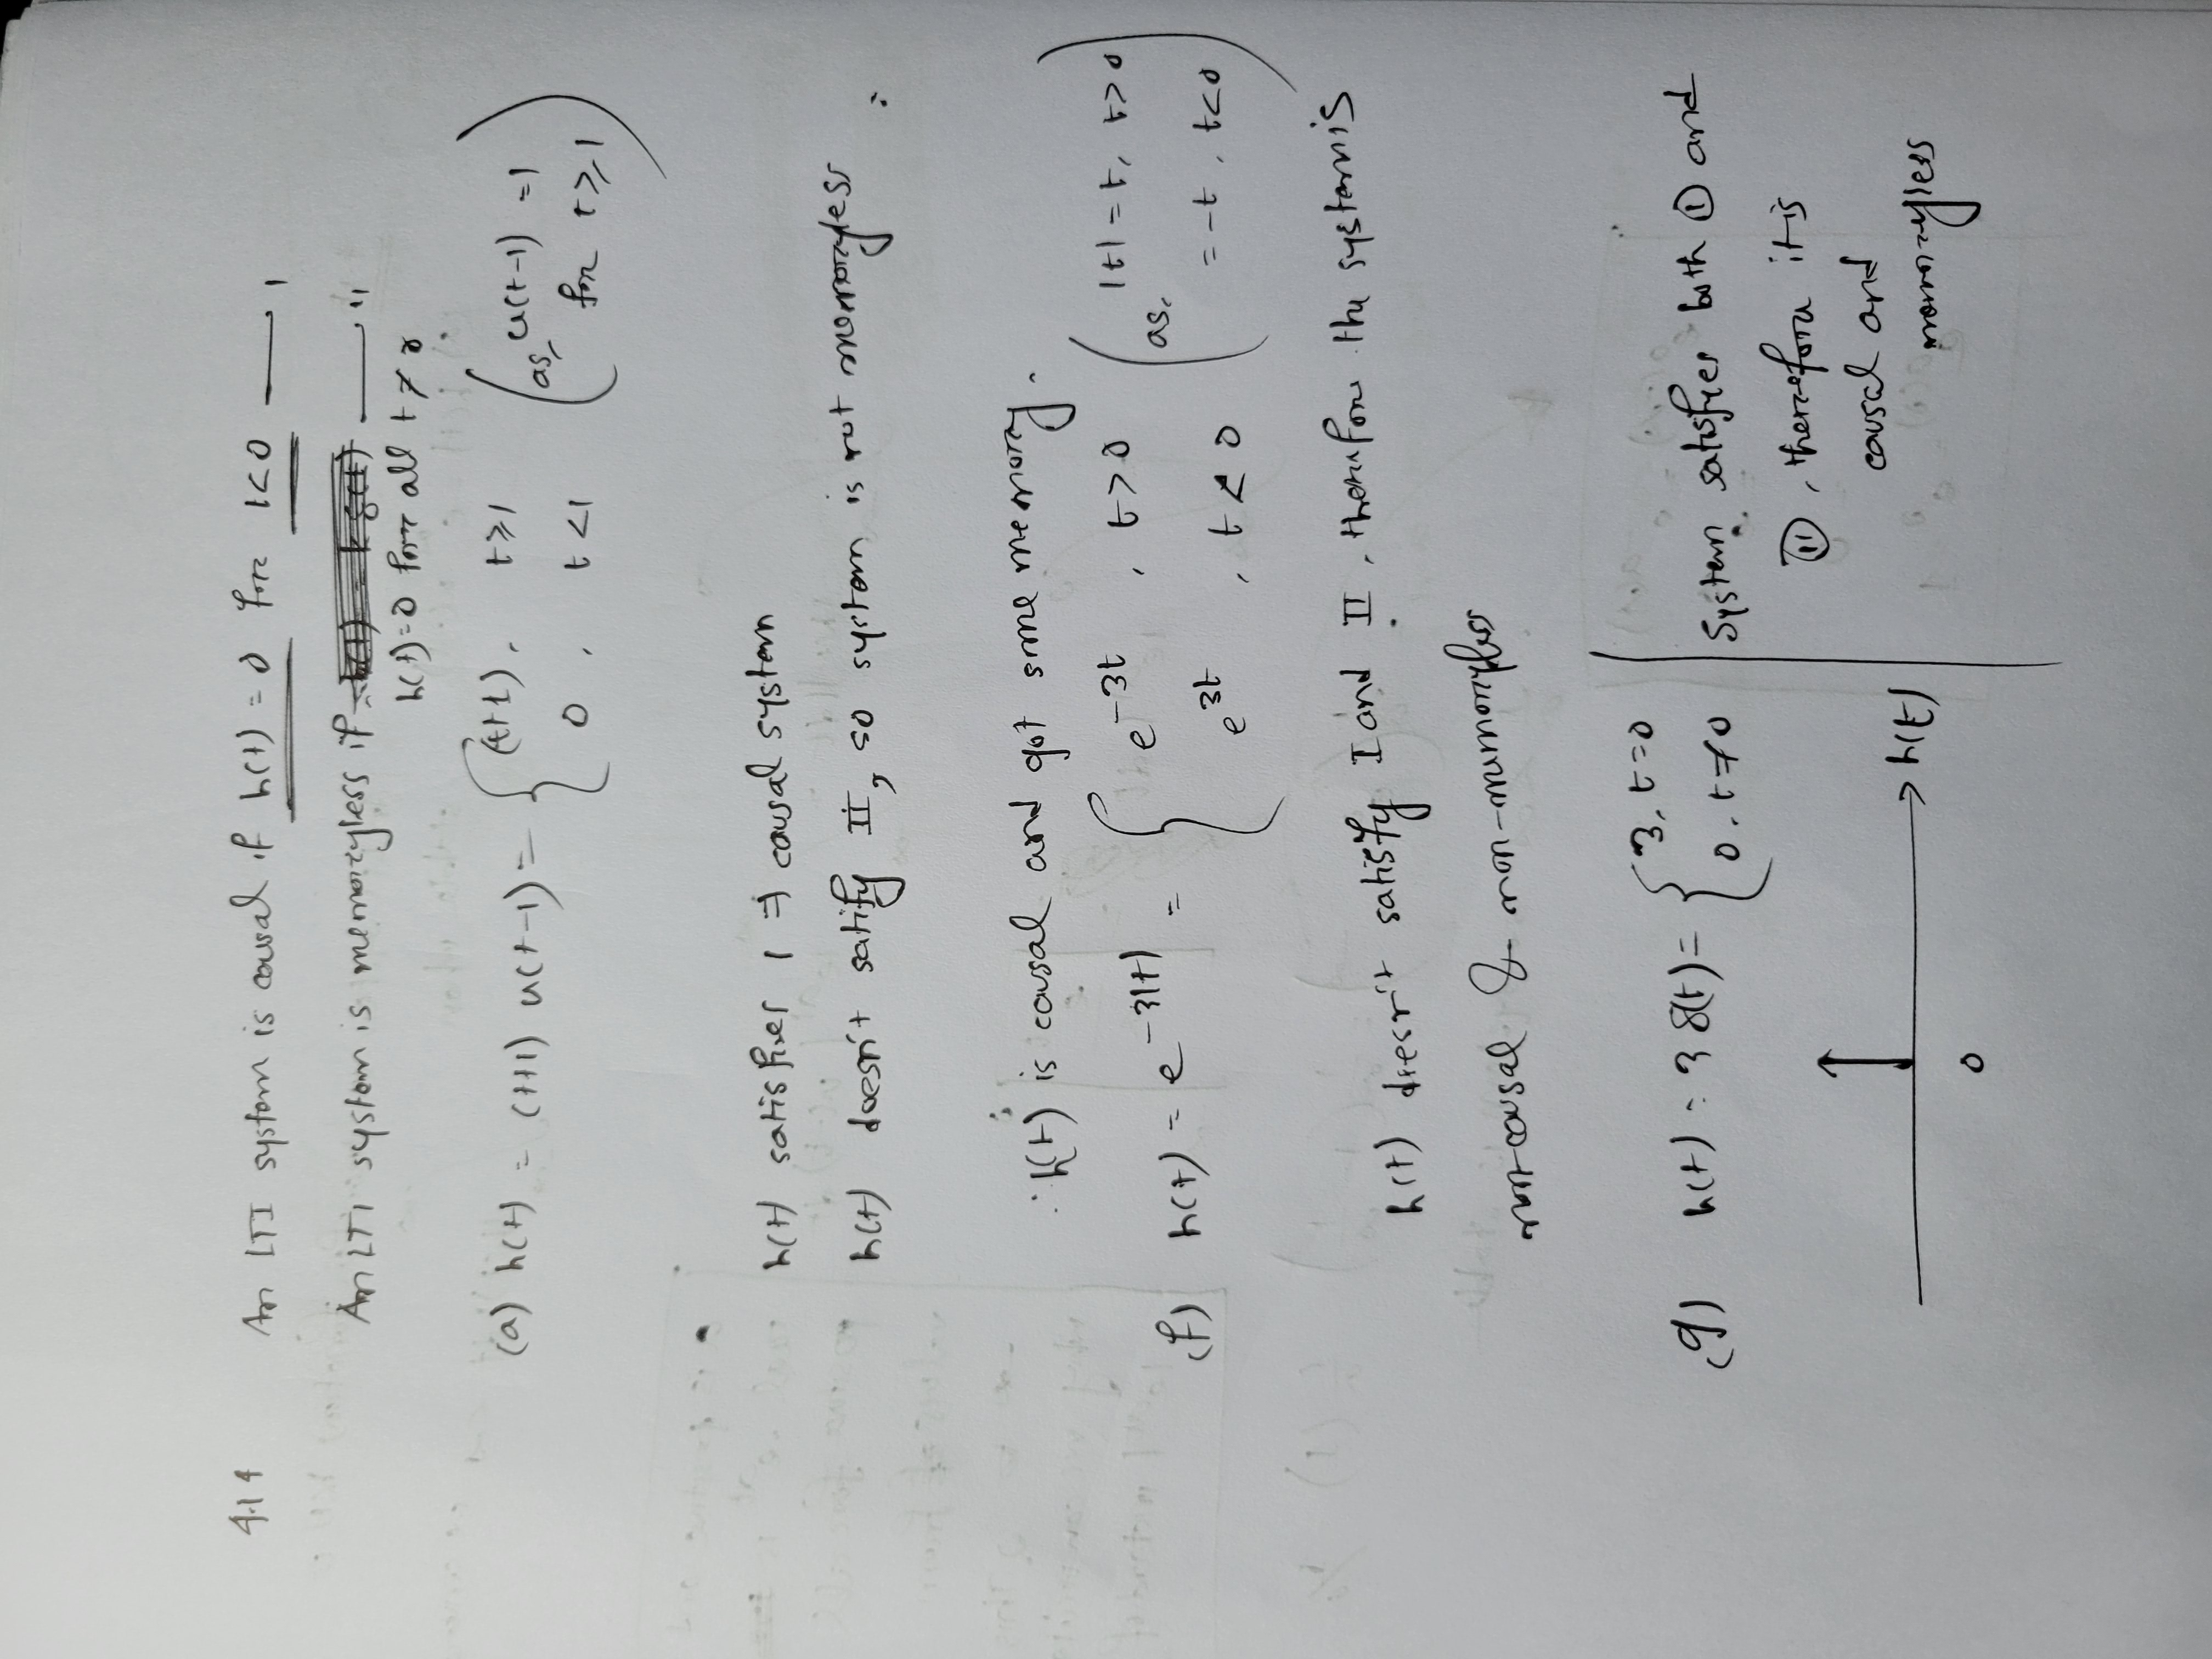 4.14 An LTI system is causal if h(t) = 0 for t<0 —— I
An LTI system is memoryless if —— II
h(t)=0 for all t ≠ 0
(a) h(t) = (t+1) u(t-1) = { (t+1), t≥1 ( as, u(t-1) = 1
0, t<1 for t≥1 )
h(t) satisfies I ⇒ causal system
h(t) doesn't satify II, so system is not memoryless
∴ h(t) is causal and got some memory.
(f) h(t) = e^{-3|t|} = { e^{-3t}, t>0 ( as, |t| = t, t>0
e^{3t}, t<0 = -t, t<0 )
h(t) doesn't satisfy I and II, therefore the system is
non-causal & non-memoryless
(g) h(t) = 3 δ(t) = { 3, t=0
0, t≠0
h(t)
0
System satisfies both I and
II, therefore it is
causal and
memoryless